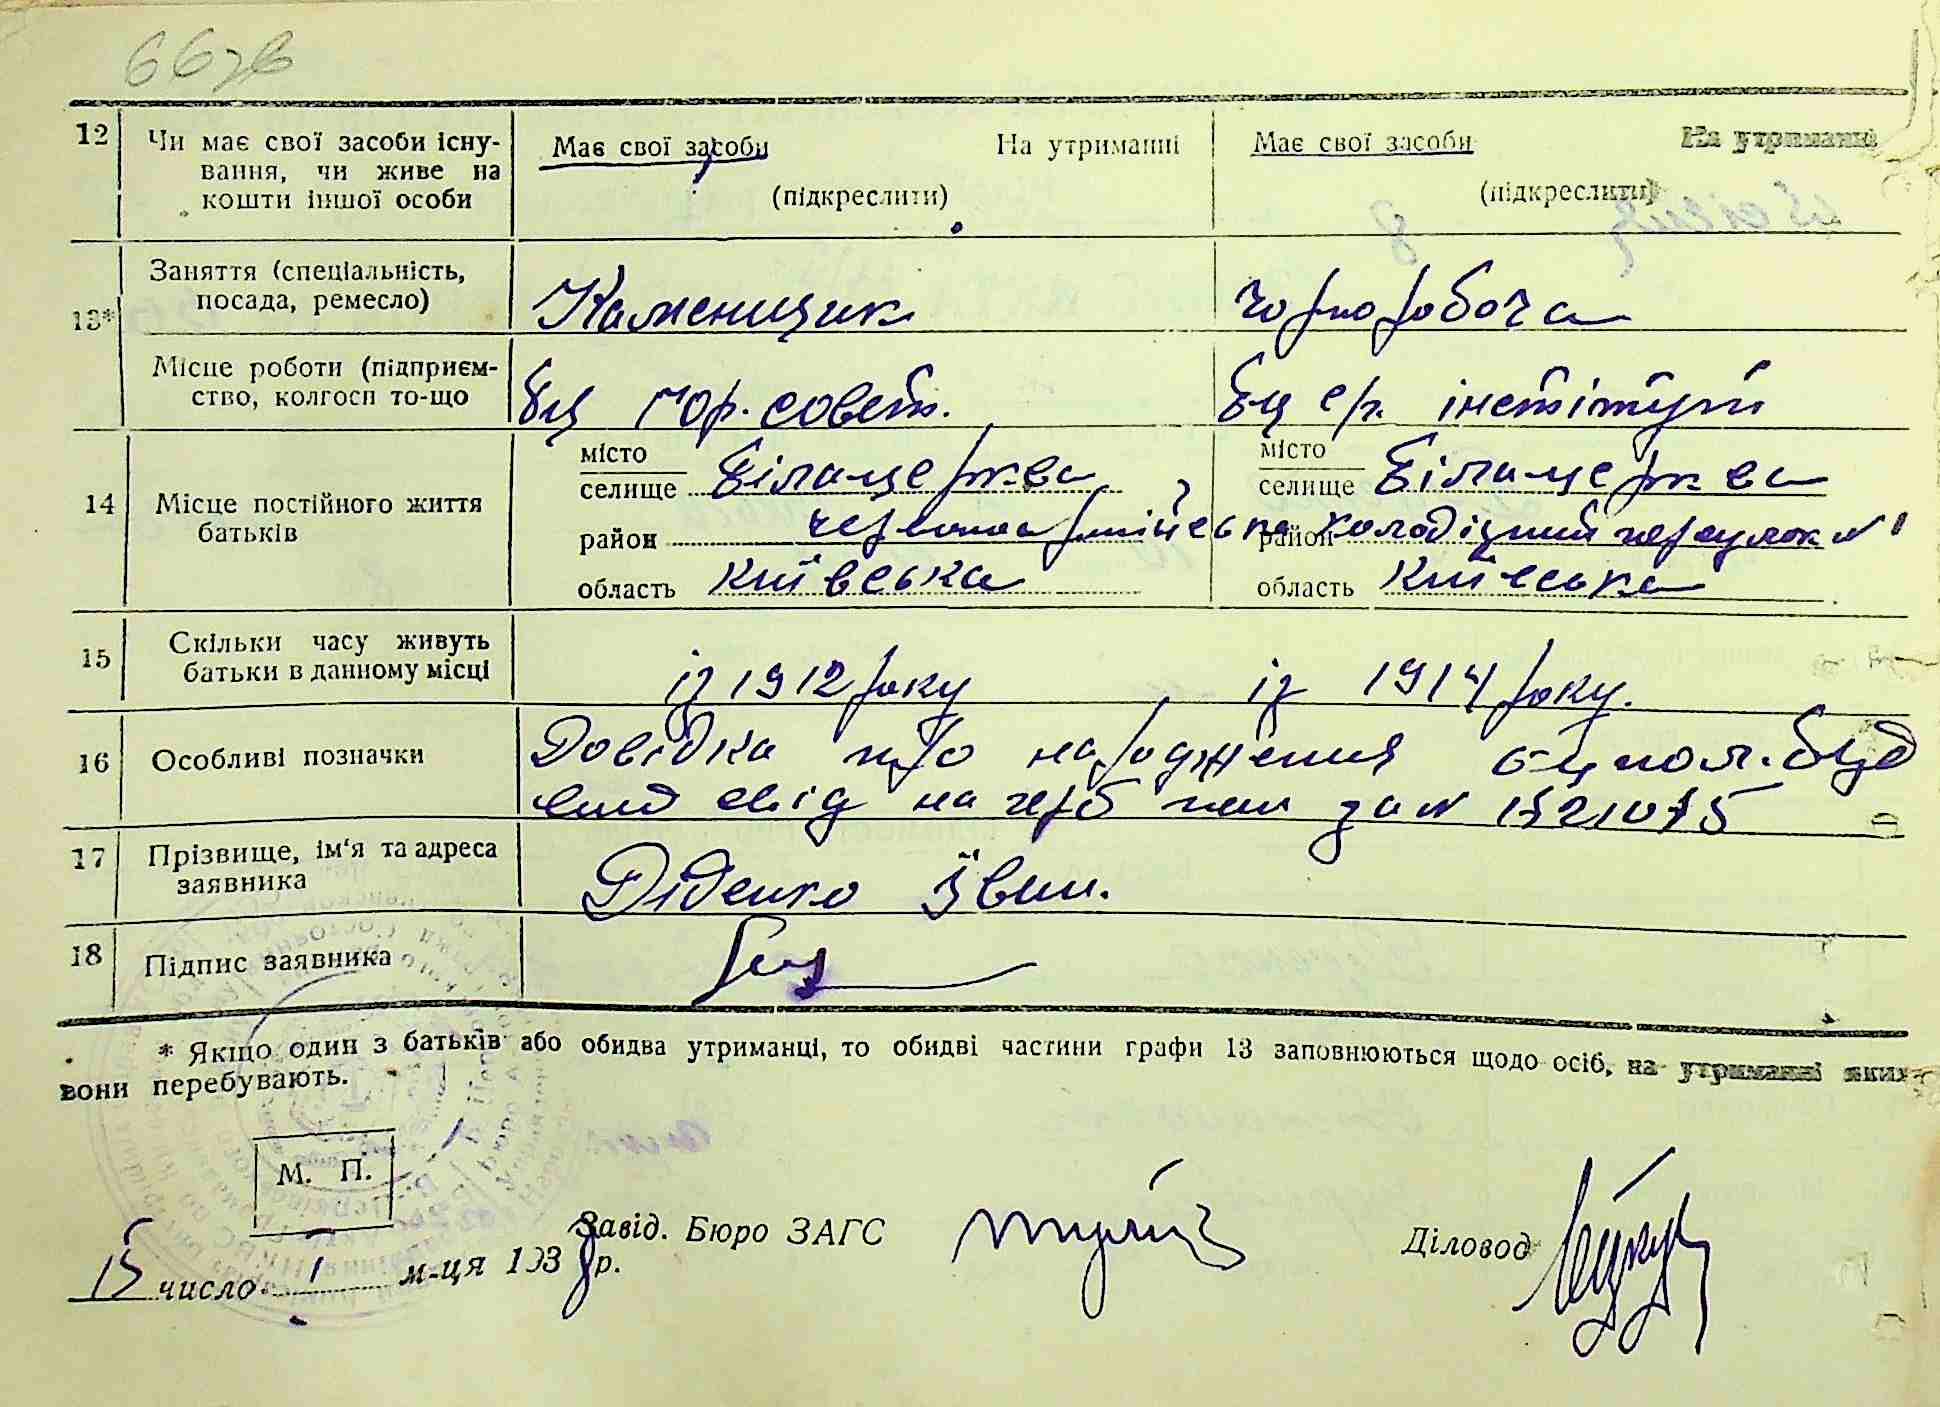 12 Чи має свої засоби існу- Має свої засоби На утриманні Має свої засоби На утриманні
вання, чи живе на (підкреслити) (підкреслити)
кошти іншої особи
13* Заняття (спеціальність, Каменщик чорноробоча
посада, ремесло)
Місце роботи (підприєм- бц гор. совет. бц с/х інстітут
ство, колгосп то-що
14 Місце постійного життя місто Білацерква місто Білацерква
батьків селище селище
район червоноармійська район холодіцний переулок №1
область київська область київська
15 Скільки часу живуть із 1912 року із 1914 року.
батьки в данному місці
16 Особливі позначки Довідка про народження
на за № 1521075
17 Прізвище, ім'я та адреса Діденко Іван.
заявника
18 Підпис заявника
* Якщо один з батьків або обидва утриманці, то обидві частини графи 13 заповнюються щодо осіб, на утриманні яких
вони перебувають.
М. П.
Завід. Бюро ЗАГС Діловод
15 число 1 м-ця 1938 р.